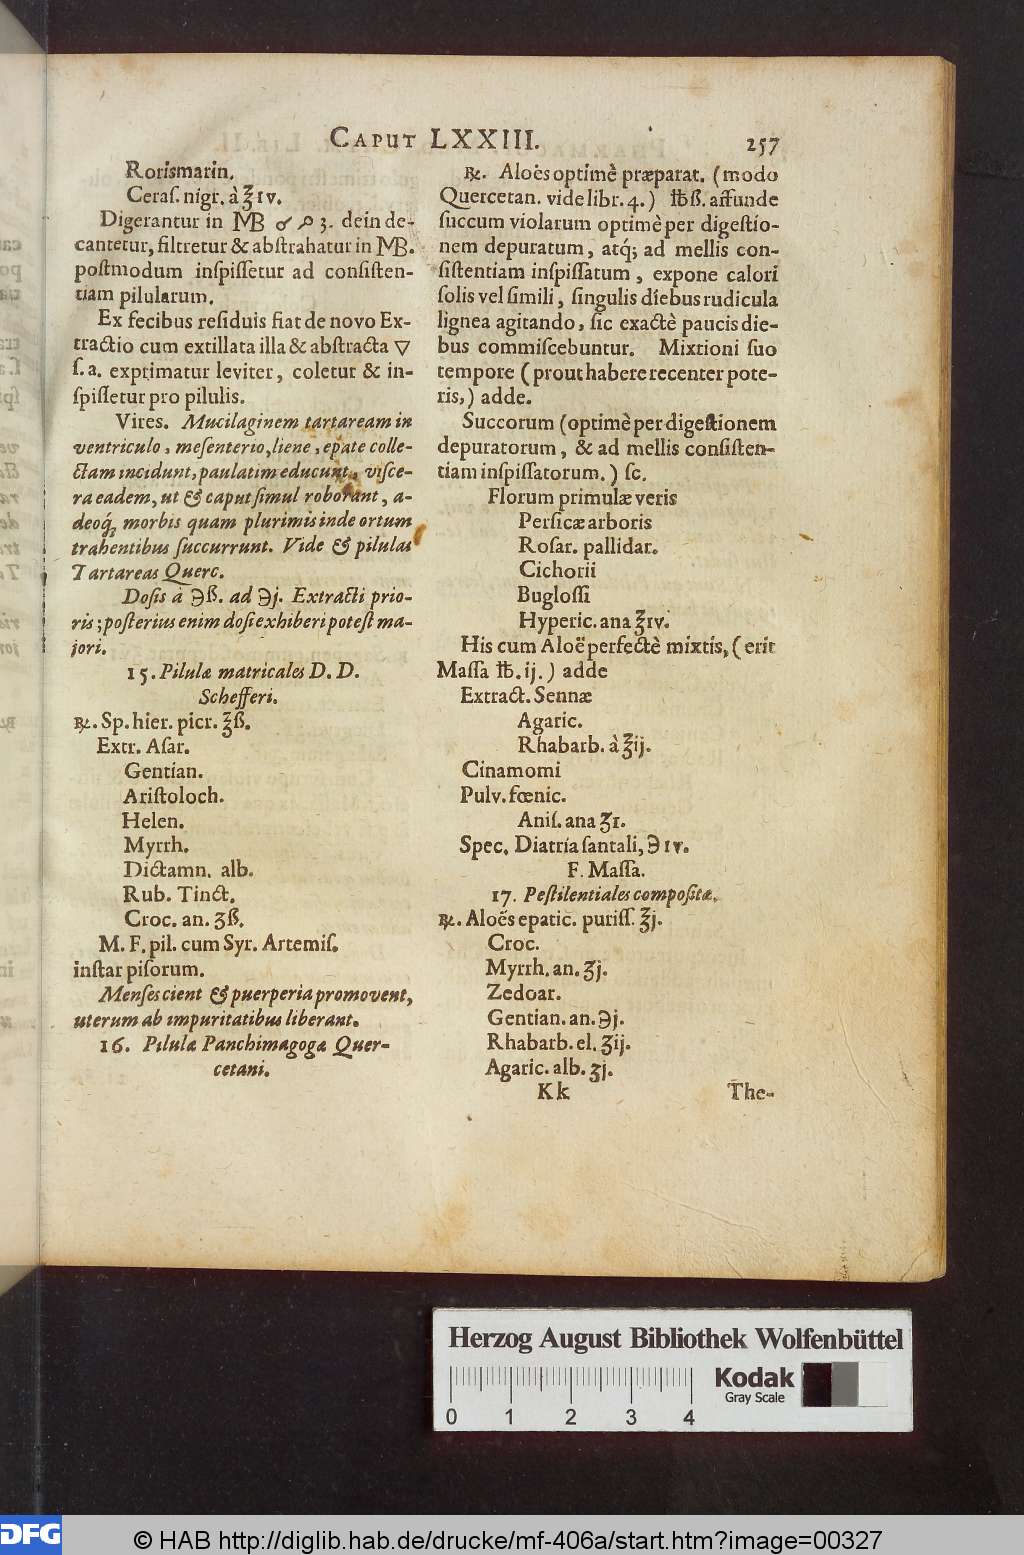 CAPUT LXXIII. 257
Rorismarin.
Ceraſ. nigr. à ℥ıv.
Digerantur in MB ♂ 3. dein de-
cantetur, filtretur & abſtrahatur in MB.
poſtmodum inſpiſſetur ad conſiſten-
tiam pilularum.
Ex fecibus reſiduis fiat de novo Ex-
tractio cum extillata illa & abſtracta ▽
ſ. a. exprimatur leviter, coletur & in-
ſpiſſetur pro pilulis.
Vires. Mucilaginem tartaream in
ventriculo, meſenterio, liene, epate colle-
ctam incidunt, paulatim educunt, viſce-
ra eadem, ut & caput ſimul roborant, a-
deoq́, morbis quam plurimis inde ortum
trahentibus ſuccurrunt. Vide & pilulas
Tartareas Querc.
Doſis à ℈ß. ad ℈j. Extracti prio-
ris; poſterius enim doſi exhiberi poteſt ma-
jori.
15. Pilulæ matricales D. D.
Schefferi.
℞. Sp. hier. picr. ℥ß.
Extr. Aſar.
Gentian.
Ariſtoloch.
Helen.
Myrrh.
Dictamn. alb.
Rub. Tinct.
Croc. an. ʒß.
M. F. pil. cum Syr. Artemiſ.
inſtar piſorum.
Menſes cient & puerperia promovent,
uterum ab impuritatibus liberant.
16. Pilulæ Panchimagogæ Quer-
cetani.
℞. Aloës optimè præparat. (modo
Quercetan. vide libr. 4.) ℔ß. affunde
ſuccum violarum optimè per digeſtio-
nem depuratum, atq́; ad mellis con-
ſiſtentiam inſpiſſatum, expone calori
ſolis vel ſimili, ſingulis diebus rudicula
lignea agitando, ſic exactè paucis die-
bus commiſcebuntur. Mixtioni ſuo
tempore (prout habere recenter pote-
ris,) adde.
Succorum (optimè per digeſtionem
depuratorum, & ad mellis conſiſten-
tiam inſpiſſatorum.) ſc.
Florum primulæ veris
Perſicæ arboris
Roſar. pallidar.
Cichorii
Bugloſſi
Hyperic. ana ℥ıv.
His cum Aloë perfectè mixtis, (erit
Maſſa ℔. ij.) adde
Extract. Sennæ
Agaric.
Rhabarb. à ℥ij.
Cinamomi
Pulv. fœnic.
Aniſ. ana ʒı.
Spec. Diatria ſantali, ℈ıv.
F. Maſſa.
17. Peſtilentiales compoſitæ.
℞. Aloës epatic. puriſſ. ℥j.
Croc.
Myrrh. an. ʒj.
Zedoar.
Gentian. an. ℈j.
Rhabarb. el. ʒij.
Agaric. alb. ʒj.
Kk The-
Herzog August Bibliothek Wolfenbüttel
Kodak
Gray Scale
0 1 2 3 4
DFG © HAB http://diglib.hab.de/drucke/mf-406a/start.htm?image=00327